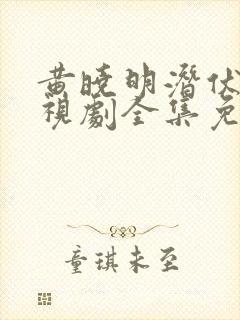 黄晓明潜伏
视剧全集免
童琪未至